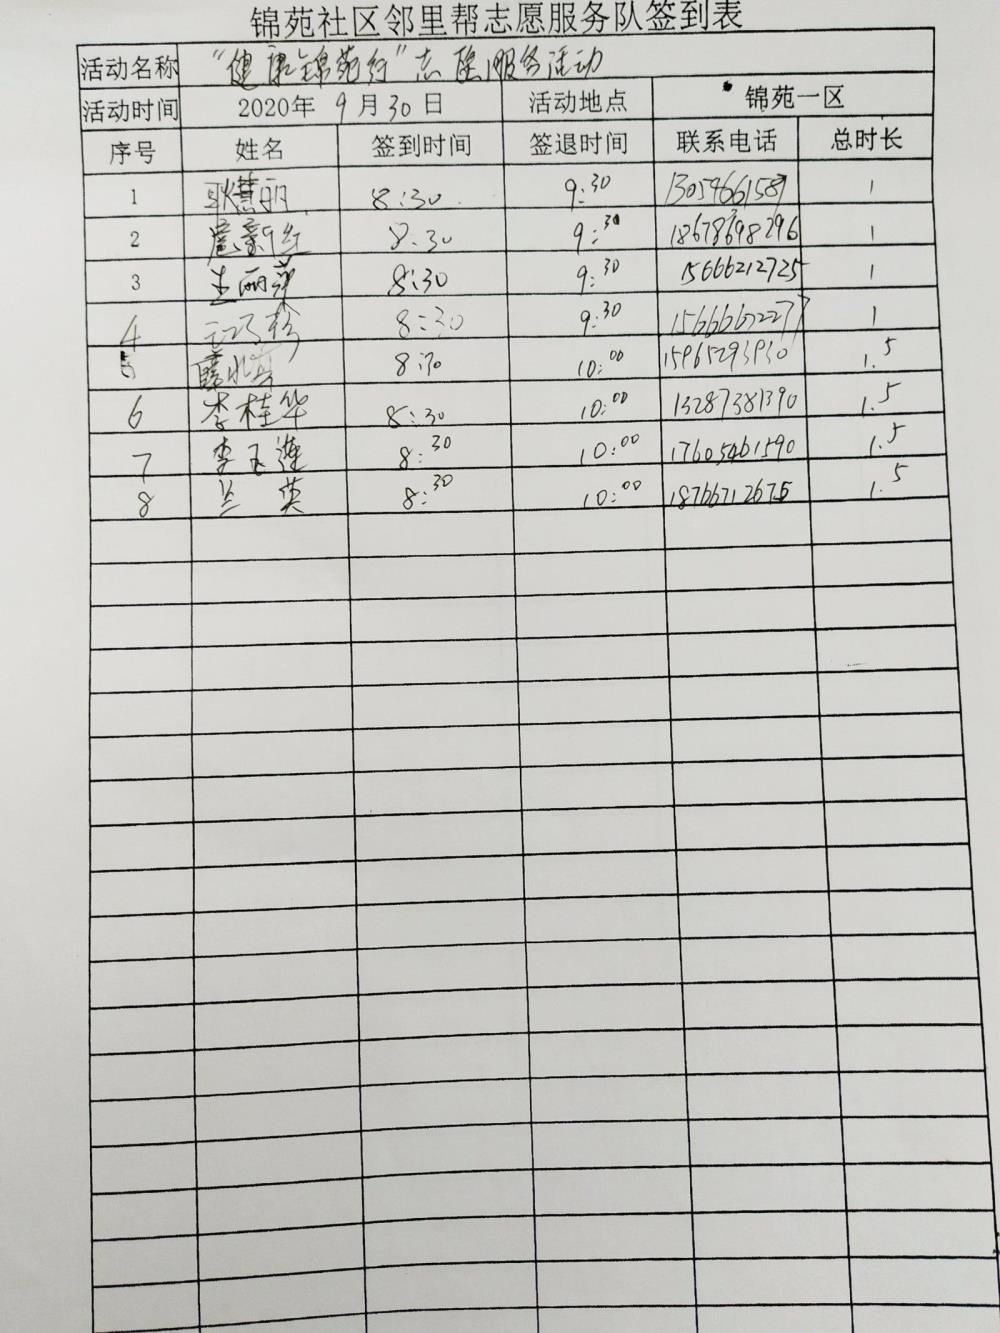 锦苑社区邻里帮志愿服务队签到表
活动名称 “健康锦苑行”志愿服务活动
活动时间 2020年 9月30日 活动地点 锦苑一区
序号 姓名 签到时间 签退时间 联系电话 总时长
1 耿慧丽 8:30 9:30 13054661587 1
2 8:30 9:30 18678698296 1
3 王丽萍 8:30 9:30 15666212725 1
4 8:30 9:30 1
5 8:30 10:00 15965293930 1.5
6 李桂华 8:30 10:00 13287381390 1.5
7 李玉莲 8:30 10:00 17605461590 1.5
8 兰英 8:30 10:00 18766712675 1.5